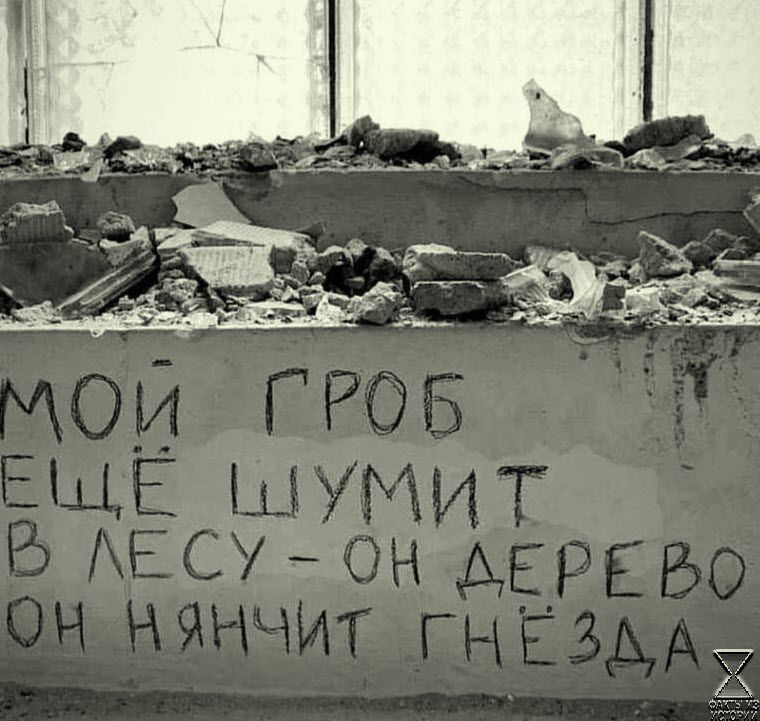 МОЙ ГРОБ
ЕЩЁ ШУМИТ
В ЛЕСУ – ОН ДЕРЕВО
ОН НЯНЧИТ ГНЁЗДА
ФАКТЫ ИЗ
ИСТОРИИ